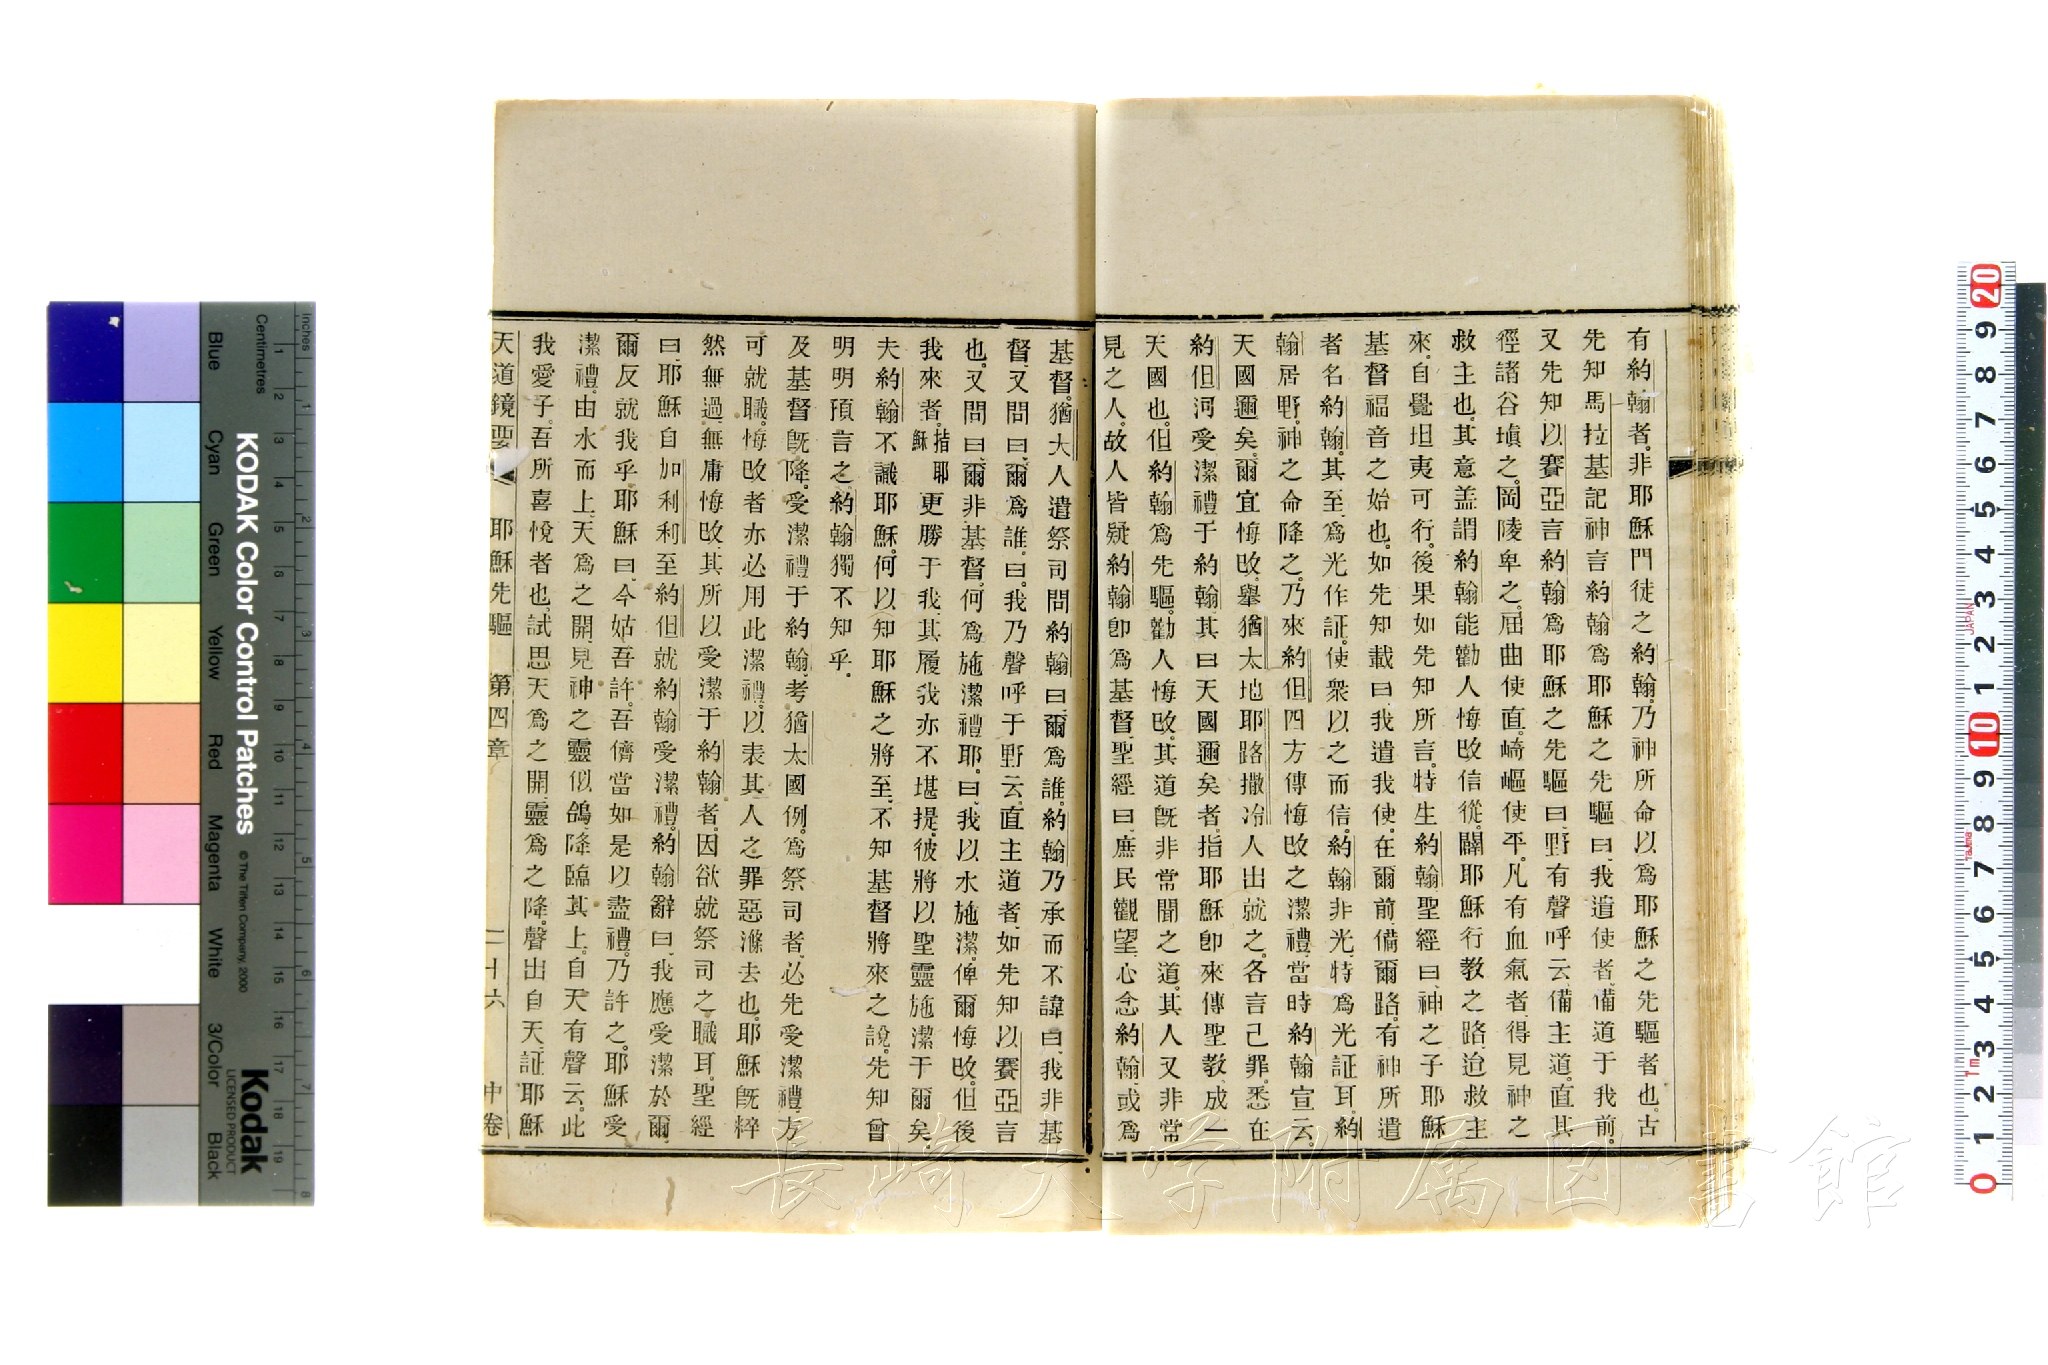 有約翰者。非耶穌門徒之約翰。乃神所命以爲耶穌之先驅者也。古
先知馬拉基記神言約翰爲耶穌之先驅曰。我遣使者。備道于我前。
又先知以賽亞言約翰爲耶穌之先驅曰。野有聲呼云。備主道。直其
徑。諸谷塡之。岡陵卑之。屈曲使直。崎嶇使平。凡有血氣者。得見神之
救主也。其意盖謂約翰能勸人悔改信從。闢耶穌行教之路。迨救主
來。自覺坦夷可行。後果如先知所言。特生約翰。聖經曰。神之子耶穌
基督福音之始也。如先知載曰。我遣我使。在爾前備爾路。有神所遣
者名約翰。其至爲光作証。使衆以之而信。約翰非光。特爲光証耳。約
翰居野。神之命降之。乃來約但四方。傳悔改之潔禮。當時約翰宣云。
天國邇矣。爾宜悔改。舉猶太地耶路撒冷人出就之。各言己罪。悉在
約但河受潔禮于約翰。其曰天國邇矣者。指耶穌卽來傳聖教。成一
天國也。但約翰爲先驅。勸人悔改。其道旣非常聞之道。其人又非常
見之人。故人皆疑約翰卽爲基督。聖經曰。庶民觀望。心念約翰。或爲
基督。猶大人遣祭司問約翰曰。爾爲誰。約翰乃承而不諱曰。我非基
督。又問曰。爾爲誰。曰。我乃聲呼于野云。直主道者。如先知以賽亞言
也。又問曰。爾非基督。何爲施潔禮耶。曰。我以水施潔。俾爾悔改。但後
我來者。指耶穌更勝于我。其履我亦不堪提。彼將以聖靈施潔于爾矣。
夫約翰不識耶穌。何以知耶穌之將至。不知基督將來之說。先知曾
明明預言之。約翰獨不知乎。
及基督旣降。受潔禮于約翰。考猶太國例。爲祭司者。必先受潔禮。方
可就職。悔改者亦必用此潔禮。以表其人之罪惡滌去也。耶穌旣粹
然無過。無庸悔改。其所以受潔于約翰者。因欲就祭司之職耳。聖經
曰。耶穌自加利利至約但。就約翰受潔禮。約翰辭曰。我應受潔於爾。
爾反就我乎。耶穌曰。今姑吾許。吾儕當如是以盡禮。乃許之。耶穌受
潔禮。由水而上。天爲之開。見神之靈似鴿。降臨其上。自天有聲云。此
我愛子。吾所喜悅者也。試思天爲之開。靈爲之降。聲出自天。証耶穌
天道鏡要 耶穌先驅 第四章 二十六 中卷
Inches
Centimetres
KODAK Color Control Patches
© The Tiffen Company, 2000
Kodak
LICENSED PRODUCT
Blue Cyan Green Yellow Red Magenta White 3/Color Black
長崎大学附属図書館